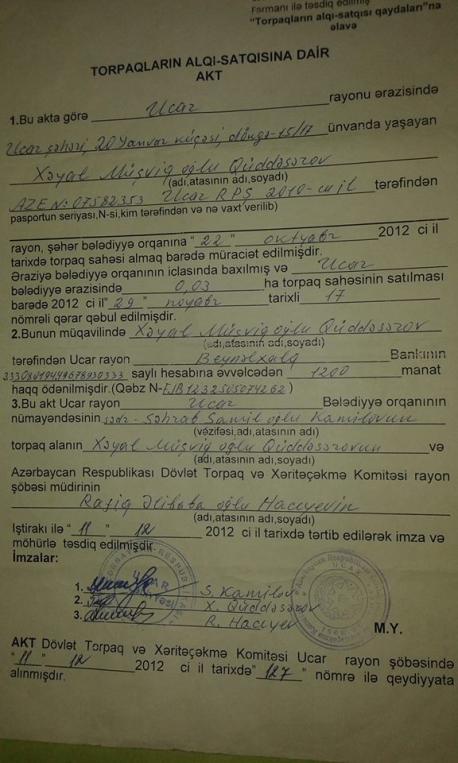 Fərmanı ilə təsdiq edilmiş
"Torpaqların alqı-satqısı qaydaları"na
əlavə
TORPAQLARIN ALQI-SATQISINA DAİR
AKT
1.Bu akta görə Ucar rayonu ərazisində
Ucar şəhəri, 20 Yanvar küçəsi, döngə-15/17 ünvanda yaşayan
Xəyal Müşviq oğlu Qüddəsərov
(adı,atasının adı,soyadı)
AZE N: 07582353 Ucar RPŞ 2010-cu il tərəfindən
pasportun seriyası,N-si,kim tərəfindən və nə vaxt verilib)
rayon, şəhər belədiyyə orqanına " 22 " oktyabr 2012 ci il
tarixdə torpaq sahəsi almaq barədə müraciət edilmişdir.
Əraziyə bələdiyyə orqanının iclasında baxılmış və Ucar
bələdiyyə ərazisində 0,03 ha torpaq sahəsinin satılması
barədə 2012 ci il" 29 " noyabr tarixli 17
nömrəli qərar qəbul edilmişdir.
2.Bunun müqavilində Xəyal Müşviq oğlu Qüddəsərov
(adı,atasının adı,soyadı)
tərəfindən Ucar rayon Beynəlxalq Bankının
saylı hesabına əvvəlcədən 1200 manat
haqq ödənilmişdir.(Qəbz N-FJB12325050742 62)
3.Bu akt Ucar rayon Ucar Bələdiyyə orqanının
nümayəndəsinin sədr - Səhrab Şamil oğlu Kamilovun
(vəzifəsi,adı,atasının adı)
torpaq alanın Xəyal Müşviq oğlu Qüddəsərovun və
(adı,atasının adı,soyadı)
Azərbaycan Respublikası Dövlət Torpaq və Xəritəçəkmə Komitəsi rayon
şöbəsi müdirinin
Rafiq Əlibaba oğlu Hacıyevin
(adı,atasının adı,soyadı)
İştirakı ilə " 11 " 12 2012 ci il tarixdə tərtib edilərək imza və
möhürlə təsdiq edilmişdir.
İmzalar:
1. S. Kamilov
2. X. Qüddəsərov
3. R. Hacıyev
M.Y.
AKT Dövlət Torpaq və Xəritəçəkmə Komitəsi Ucar rayon şöbəsində
" 11 " 12 2012 ci il tarixdə" 127 " nömrə ilə qeydiyyata
alınmışdır.